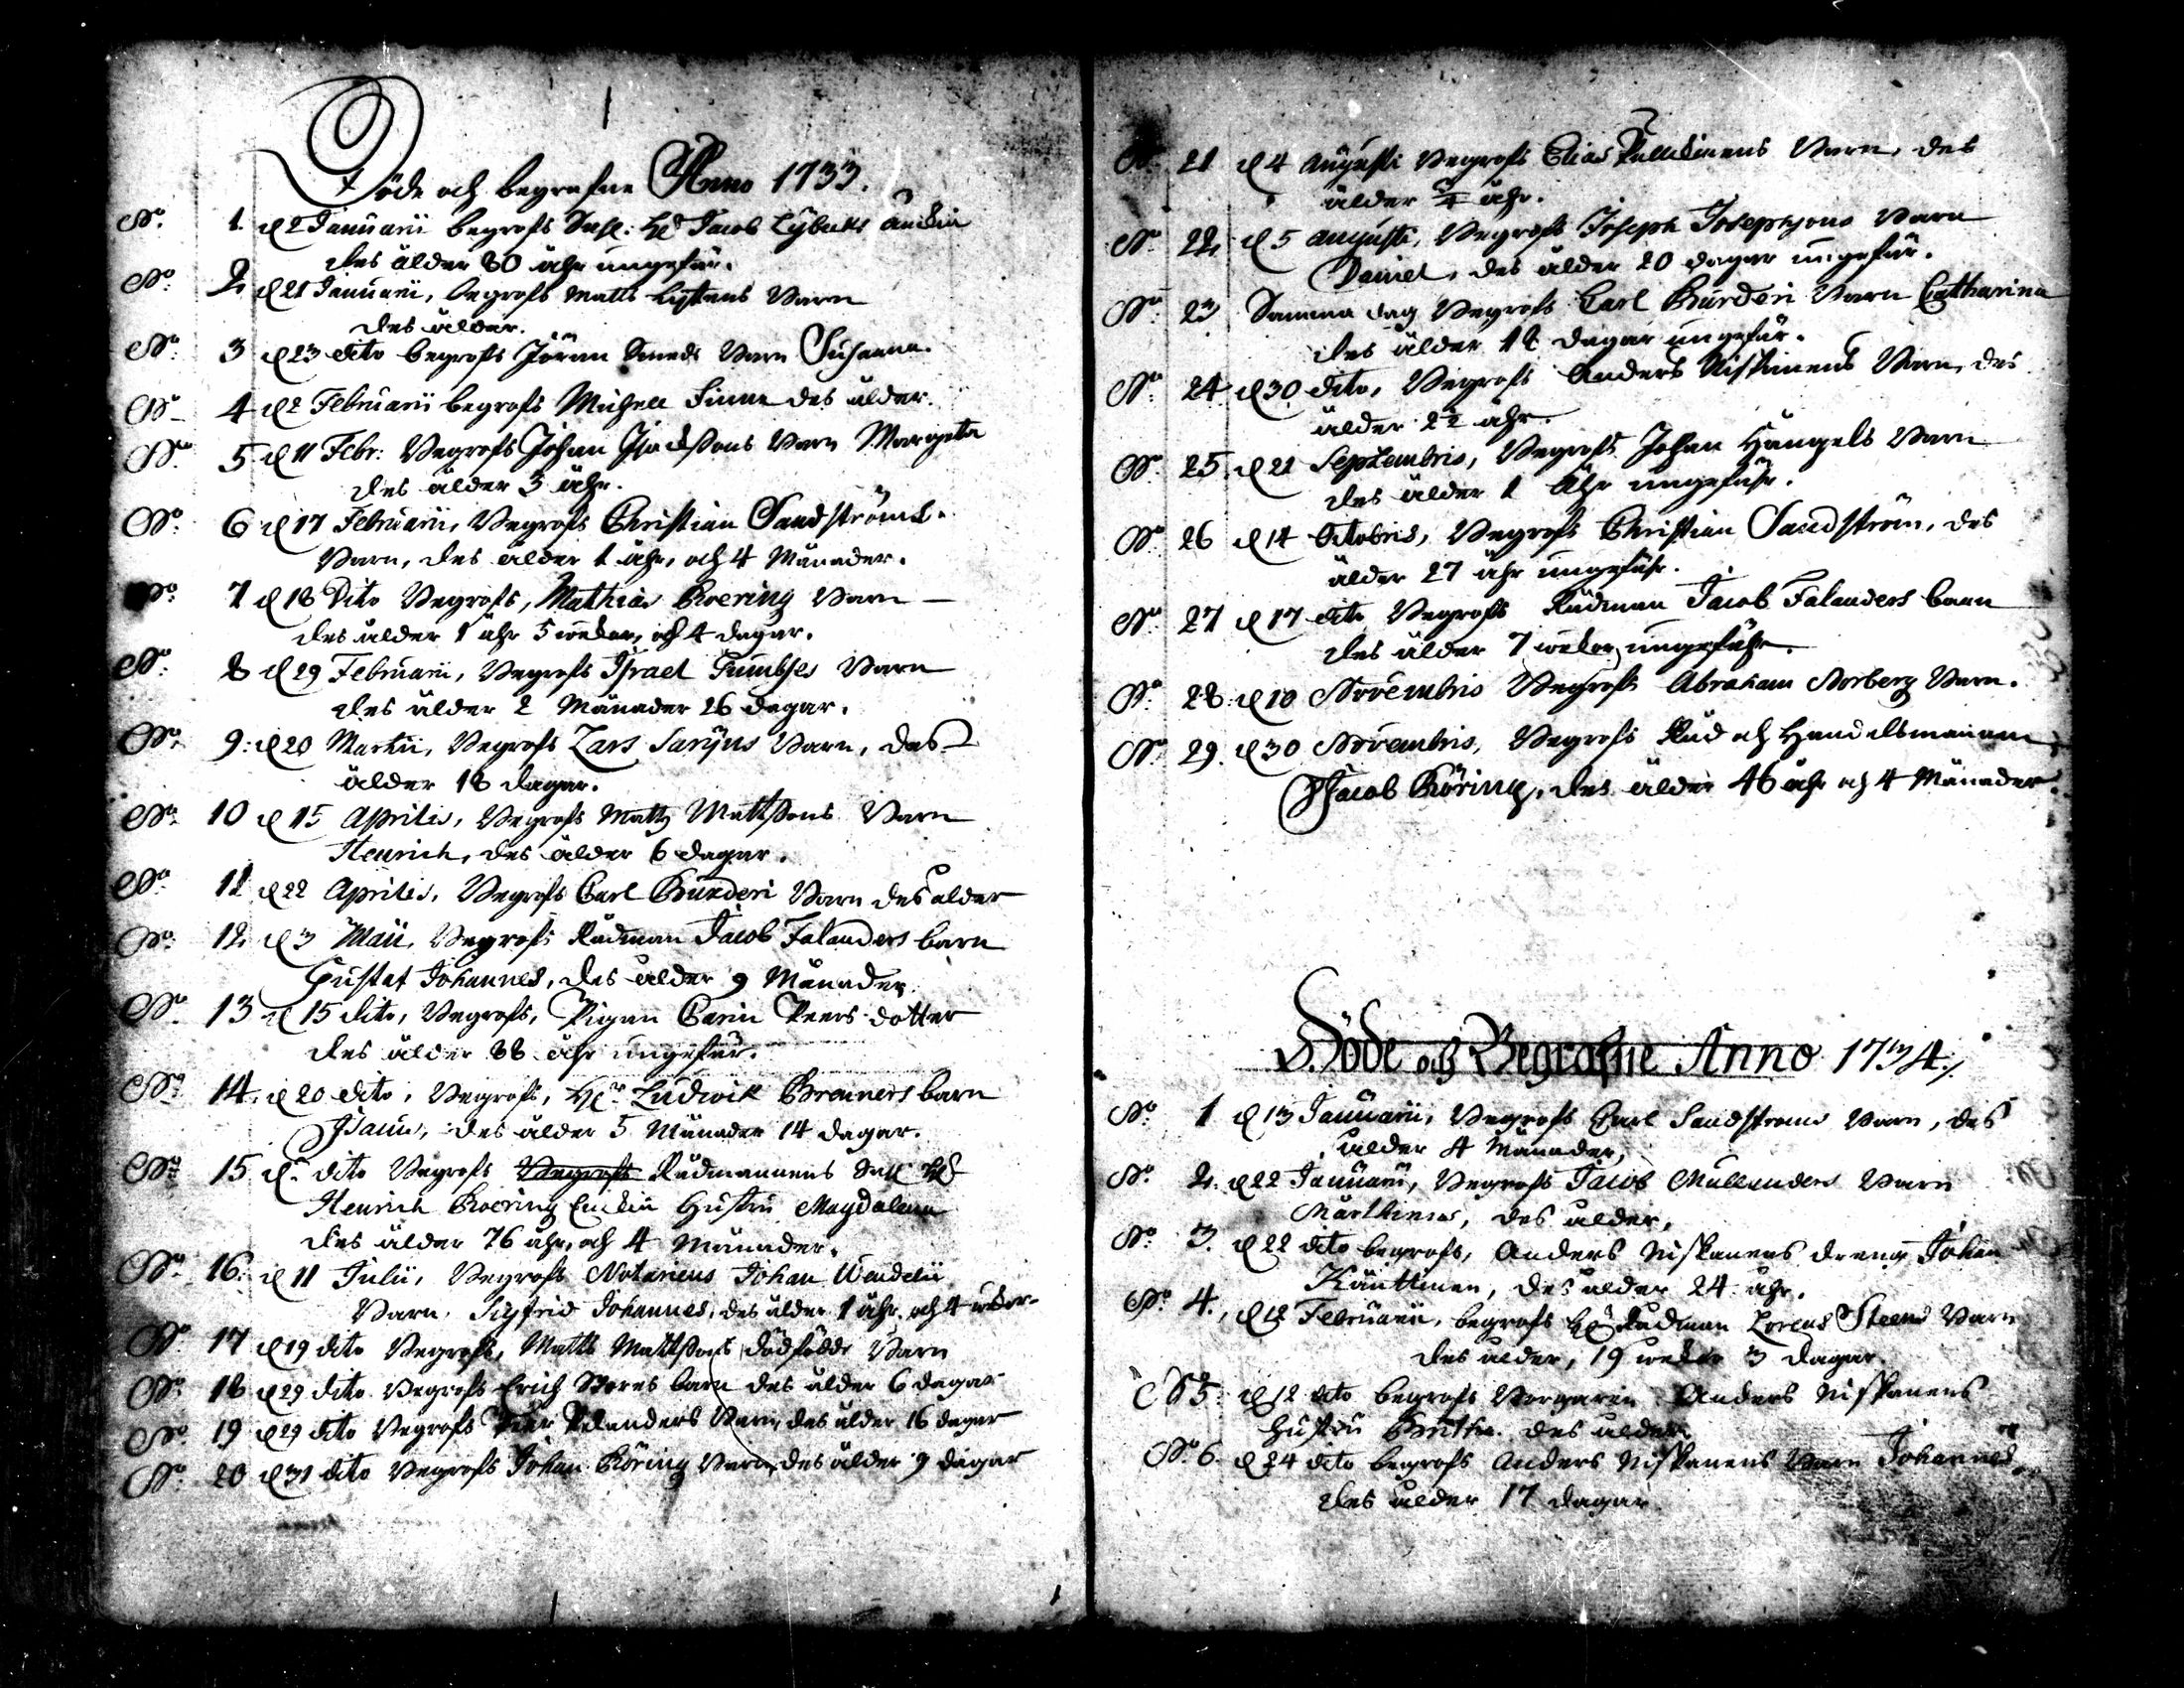 Döde och begrafne Anno 1733.
No. 1. d 2 Januarii begrofs Sahl: Hr Jacob Lybecks änckia
des ålder 80 åhr ungefär.
No: 2, d 21 Januarii, begrofs Matts Lystens Barn
des ålder.
No: 3 d 23 dito begrofs Jöran Smeds Barn Susanna.
No 4 d 2 Februarii begrofs Michell Finne des ålder.
No. 5 d 11 Febr: Begrofs Johan Isacksons Barn Margeta
des ålder 3 åhr.
No. 6 d 17 Februarii, Begrofs Christian Sandströms
Barn, des ålder 1 åhr, och 4 Månader.
No: 7 d 18 Dito Begrofs, Mathias Roering Barn
des ålder 1 åhr 5 wekor, och 4 dagar.
No: 8 d 29 Februarii, Begrofs Israel Barn
des ålder 2 Månader 26 dagar.
No. 9: d 20 Martii, Begrofs Lars Barn, des
ålder 18 dagar.
No: 10 d 15 Aprilis, Begrofs Matts Mattsons Barn
Henrich, des ålder 6 dagar.
No: 11 d 22 Aprilis, Begrofs Carl Burderi Barn des ålder
No: 12 d 3 Maii, Begrofs Rådman Jacob Falanders barn
Gustaf Johannes, des ålder 9 Månader.
No 13 d 15 dito, Begrofs, Pigan Carin Peers dotter
des ålder 88 åhr ungefär.
No: 14. d 20 dito, Begrofs, Hr Ludwik Brenners barn
des ålder 5 Månader 14 dagar.
No 15 d. dito Begrofs Begrofs Rådmannens Sal Hr
Henrich Roering Enckia Hustru Magdalena
des ålder 76 åhr, och 4 Månader.
No: 16. d 11 Julii, Begrofs Notariens Johan Wendelii
Barn. Sigfrid Johannes, des ålder 1 åhr, och 4 wekor
No. 17 d 19 dito Begrofs, Matts Mattsons dödfödde Barn
No: 18 d 29 dito Begrofs Erich Stores barn des ålder 6 dagar
No. 19 d 29 dito Begrofs Peer Barn, des ålder 16 dagar
No: 20 d 31 dito Begrofs Johan Röring Barn, des ålder 9 dagar
No. 21 d 4 Augusti Begrofs Elias Barn, des
ålder 3/4 åhr.
No: 22, d 5 Augusti, Begrofs Joseph Josephsons Barn
Daniel, des ålder 20 dagar ungefär.
No: 23 Samma dag Begrofs Carl Burderi Barn Catharina
des ålder 18 dagar ungefär.
No: 24 d 30 dito, Begrofs Anders Nissinens Barn, des
ålder 2 1/2 åhr.
No: 25. d 21 Septembris, Begrofs Johan Hängels Barn
des ålder 1 åhr ungefähr.
No: 26 d 14 Octobris, Begrofs Christian Sandström, des
ålder 27 åhr ungefähr.
No: 27 d 17 dito Begrofs Rådman Jacob Falanders barn
des ålder 7 wekor, ungefähr.
No: 28: d 10 Novembris Begrofs Abraham Norberg Barn.
No: 29. d 30 Novembris, Begrofs Råd och Handelsmannen
Jacob Röring, des ålder 46 åhr och 4 Månader.
Döde och Begrafne Anno 1734.
No: 1 d 13 Januarii, Begrofs Carl Sandströms Barn, des
ålder 4 Månader,
No. 2. d 22 Januarii, Begrofs Jacob Mullanders Barn
des ålder,
No: 3. d 22 dito begrofs, Anders Niskanens dreng Johan
Känttinen, des ålder 24 åhr.
No. 4. d 12 Februarii, begrofs Hr Rådman Lorens Steens Barn
des ålder, 19 wekor 3 dagar.
No 5: d 12 dito begrofs Borgaren Anders Niskanens
Hustru Britha des ålder
No. 6. d 24 dito begrofs Anders Niskanens Barn Johannes
des ålder 17 dagar